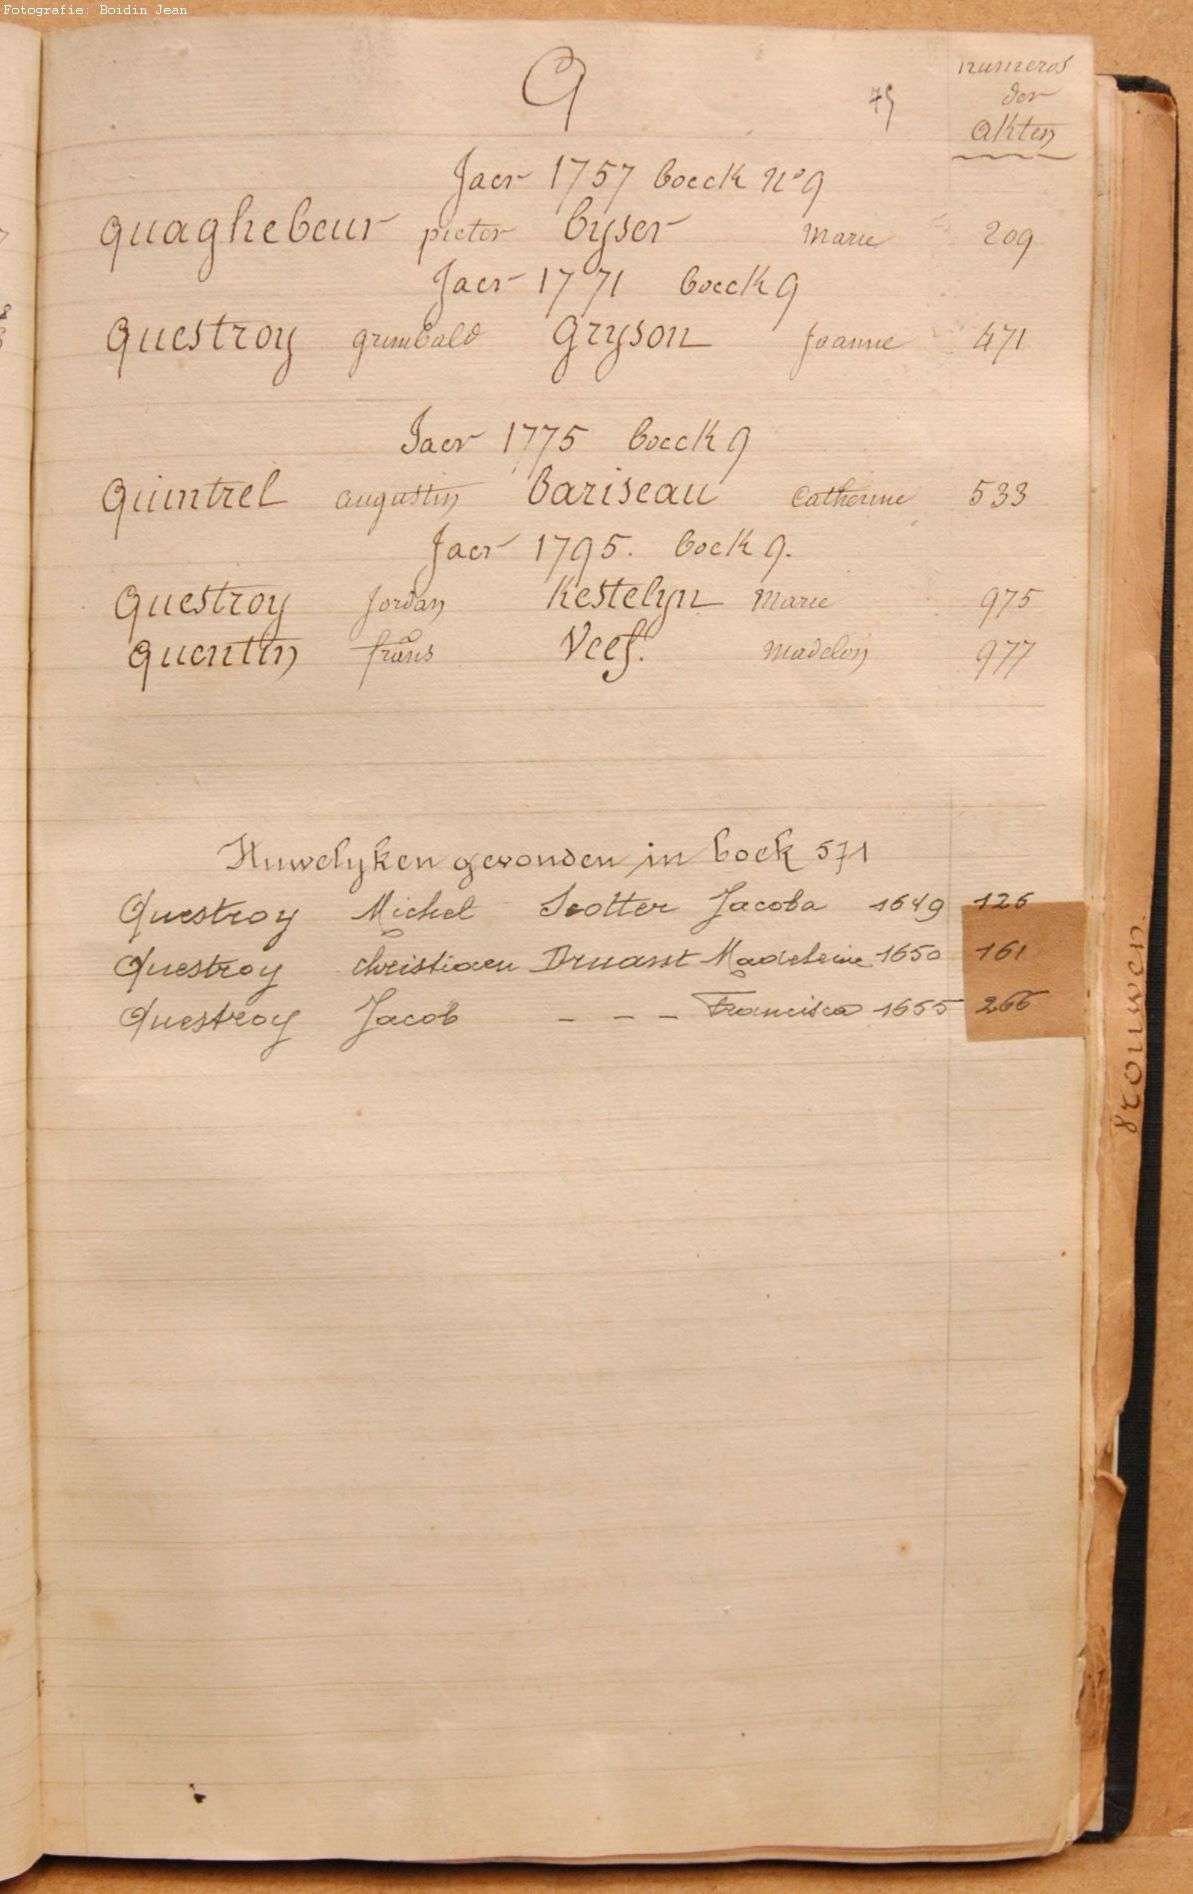 Fotografie: Boidin Jean
Q
numeros
der
akten
Jaer 1757 boeck N° 9
Quaghebeur pieter Cyser Marie 209
Jaer 1771 boeck 9
Questroy grimbald Gryson Joanne 471
Jaer 1775 boeck 9
Quintrel augustin Bariseau Catherine 533
Jaer 1795. boek 9.
Questroy Jordan Kestelyn Marie 975
Quentin frans Veef. Madelon 977
Huwelyken gevonden in boek 571
Questroy Michel Scotter Jacoba 1649 126
Questroy Christiaen Druant Madeleine 1650 161
Questroy Jacob - - - Francisca 1655 266
vrouwen